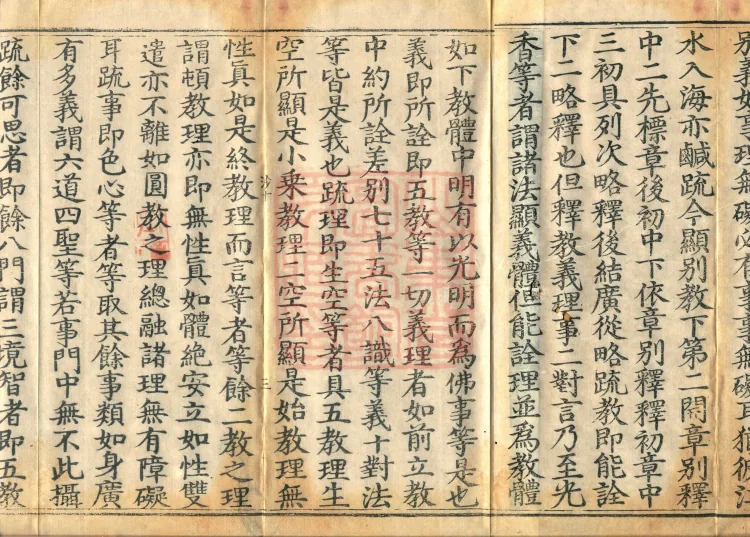 別義如事理無礙必有事事無礙正猶彼江
水入海亦鹹疏今顯別教下第二開章別釋
中二先標章後初中下依章別釋釋初章中
三初具列次略釋後結廣從略疏教即能詮
下二略釋也但釋教義理事二對言乃至光
香等者謂諸法顯義體但能詮理並為教體
如下教體中明有以光明而為佛事等是也
義即所詮即五教等一切義理者如前立教
中約所詮差別七十五法八識等義十對法
等皆是義也疏理即生空等者具五教理生
空所顯是小乘教理二空所顯是始教理無
性真如是終教理而言等者等餘二教之理
謂頓教理亦即無性真如體絕安立如性雙
遣亦不離如圓教之理總融諸理無有障礙
耳疏事即色心等者等取其餘事類如身廣
有多義謂六道四聖等若事門中無不此攝
疏餘可思者即餘八門謂三境智者即五教